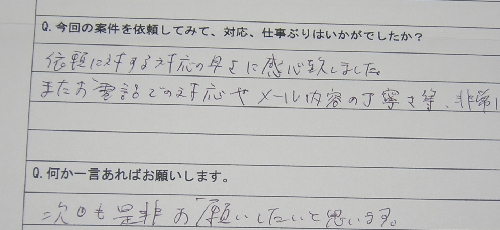 Q. 今回の案件を依頼してみて、対応、仕事ぶりはいかがでしたか？
依頼に対する対応の早さに感心致しました。
またお電話での対応やメール内容の丁寧さ等、非常に
Q. 何か一言あればお願いします。
次回も是非お願いしたいと思います。